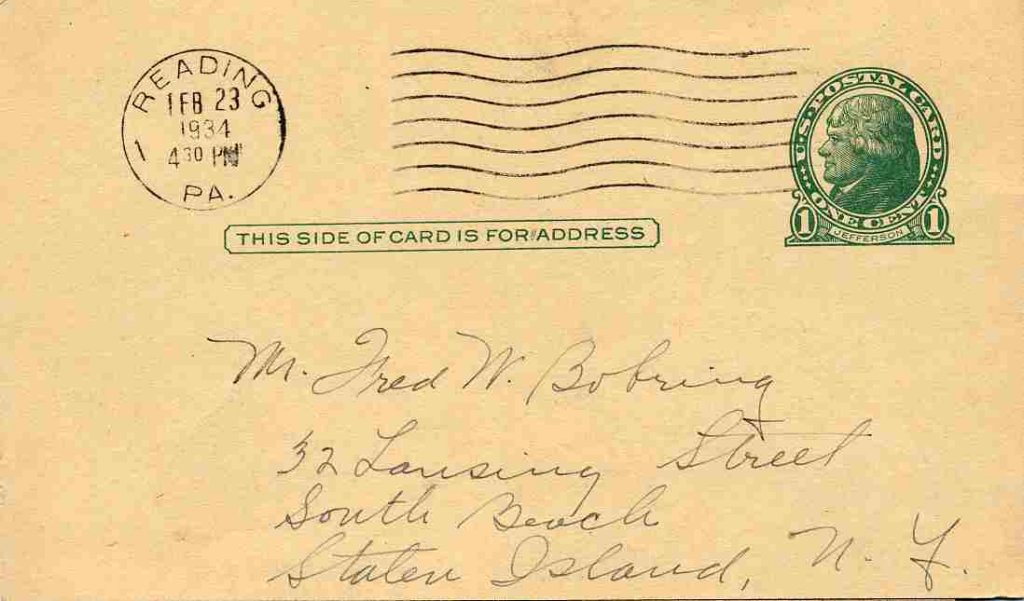 READING
1 FEB 23
1934
4 30 PM
PA.
1
U.S. POSTAL CARD
ONE CENT
1 JEFFERSON 1
THIS SIDE OF CARD IS FOR ADDRESS
Mr. Fred W. Bobring
32 Lansing Street
South Beach
Staten Island, N. Y.